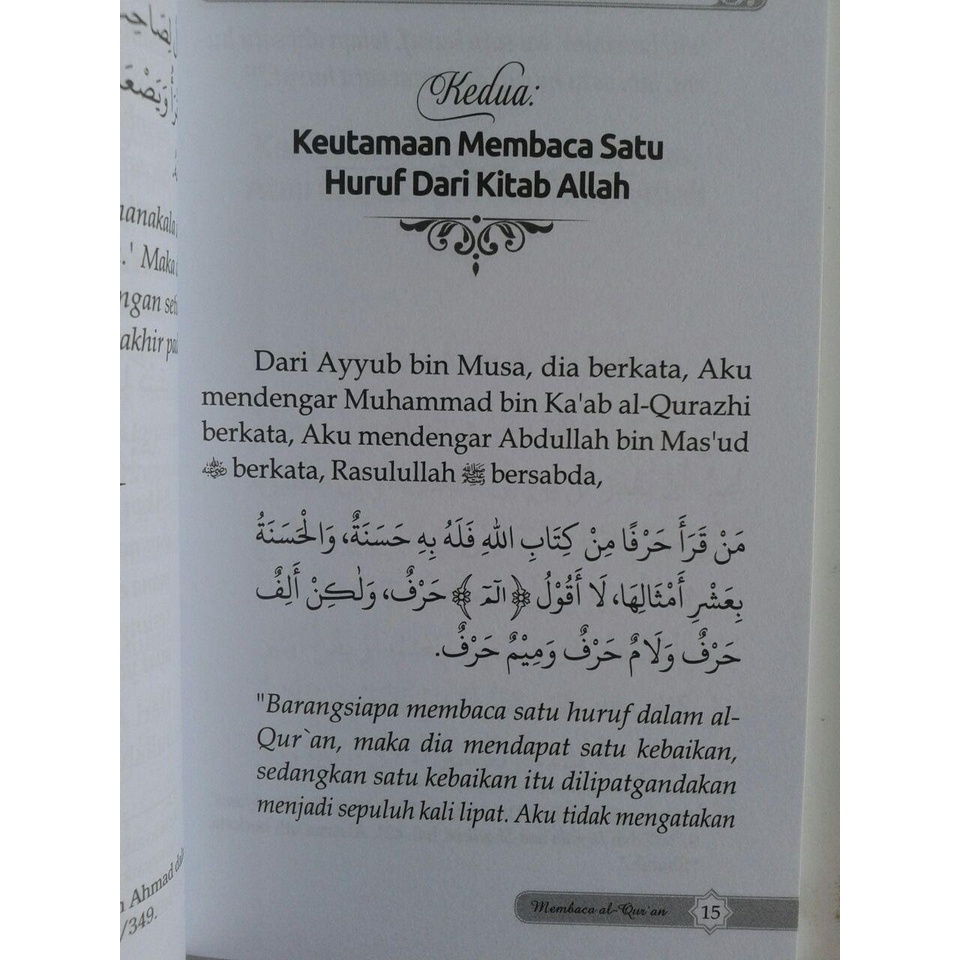 manakala
.' Maka
ngan
akhir
Ahmad
/349.
Kedua:
Keutamaan Membaca Satu
Huruf Dari Kitab Allah
Dari Ayyub bin Musa, dia berkata, Aku
mendengar Muhammad bin Ka'ab al-Qurazhi
berkata, Aku mendengar Abdullah bin Mas'ud
berkata, Rasulullah ﷺ bersabda,
مَنْ قَرَأَ حَرْفًا مِنْ كِتَابِ اللهِ فَلَهُ بِهِ حَسَنَةٌ، وَالْحَسَنَةُ
بِعَشْرِ أَمْثَالِهَا، لَا أَقُوْلُ ﴿الٓمٓ﴾ حَرْفٌ، وَلٰكِنْ أَلِفٌ
حَرْفٌ وَلَامٌ حَرْفٌ وَمِيْمٌ حَرْفٌ.
"Barangsiapa membaca satu huruf dalam al-
Qur`an, maka dia mendapat satu kebaikan,
sedangkan satu kebaikan itu dilipatgandakan
menjadi sepuluh kali lipat. Aku tidak mengatakan
Membaca al-Qur`an 15